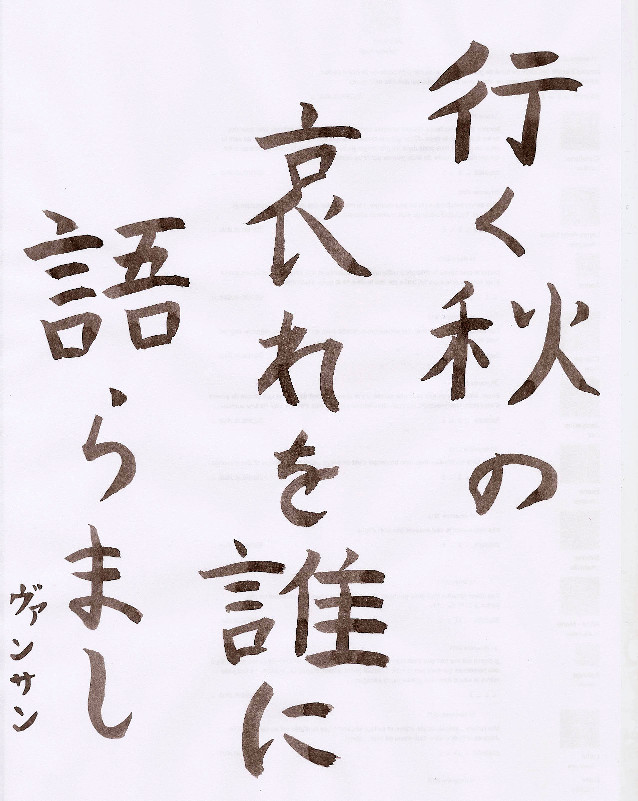 行く秋の
哀れを誰に
語らまし
ヴァンサン